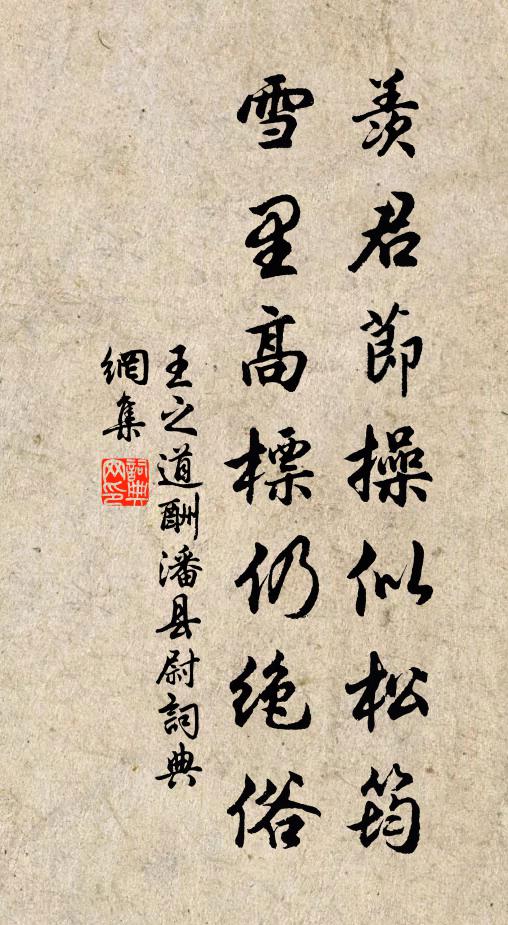 羨君節操似松筠
雪里高標仍絶俗
王之道酬潘县尉詞典
網集
詞典网印